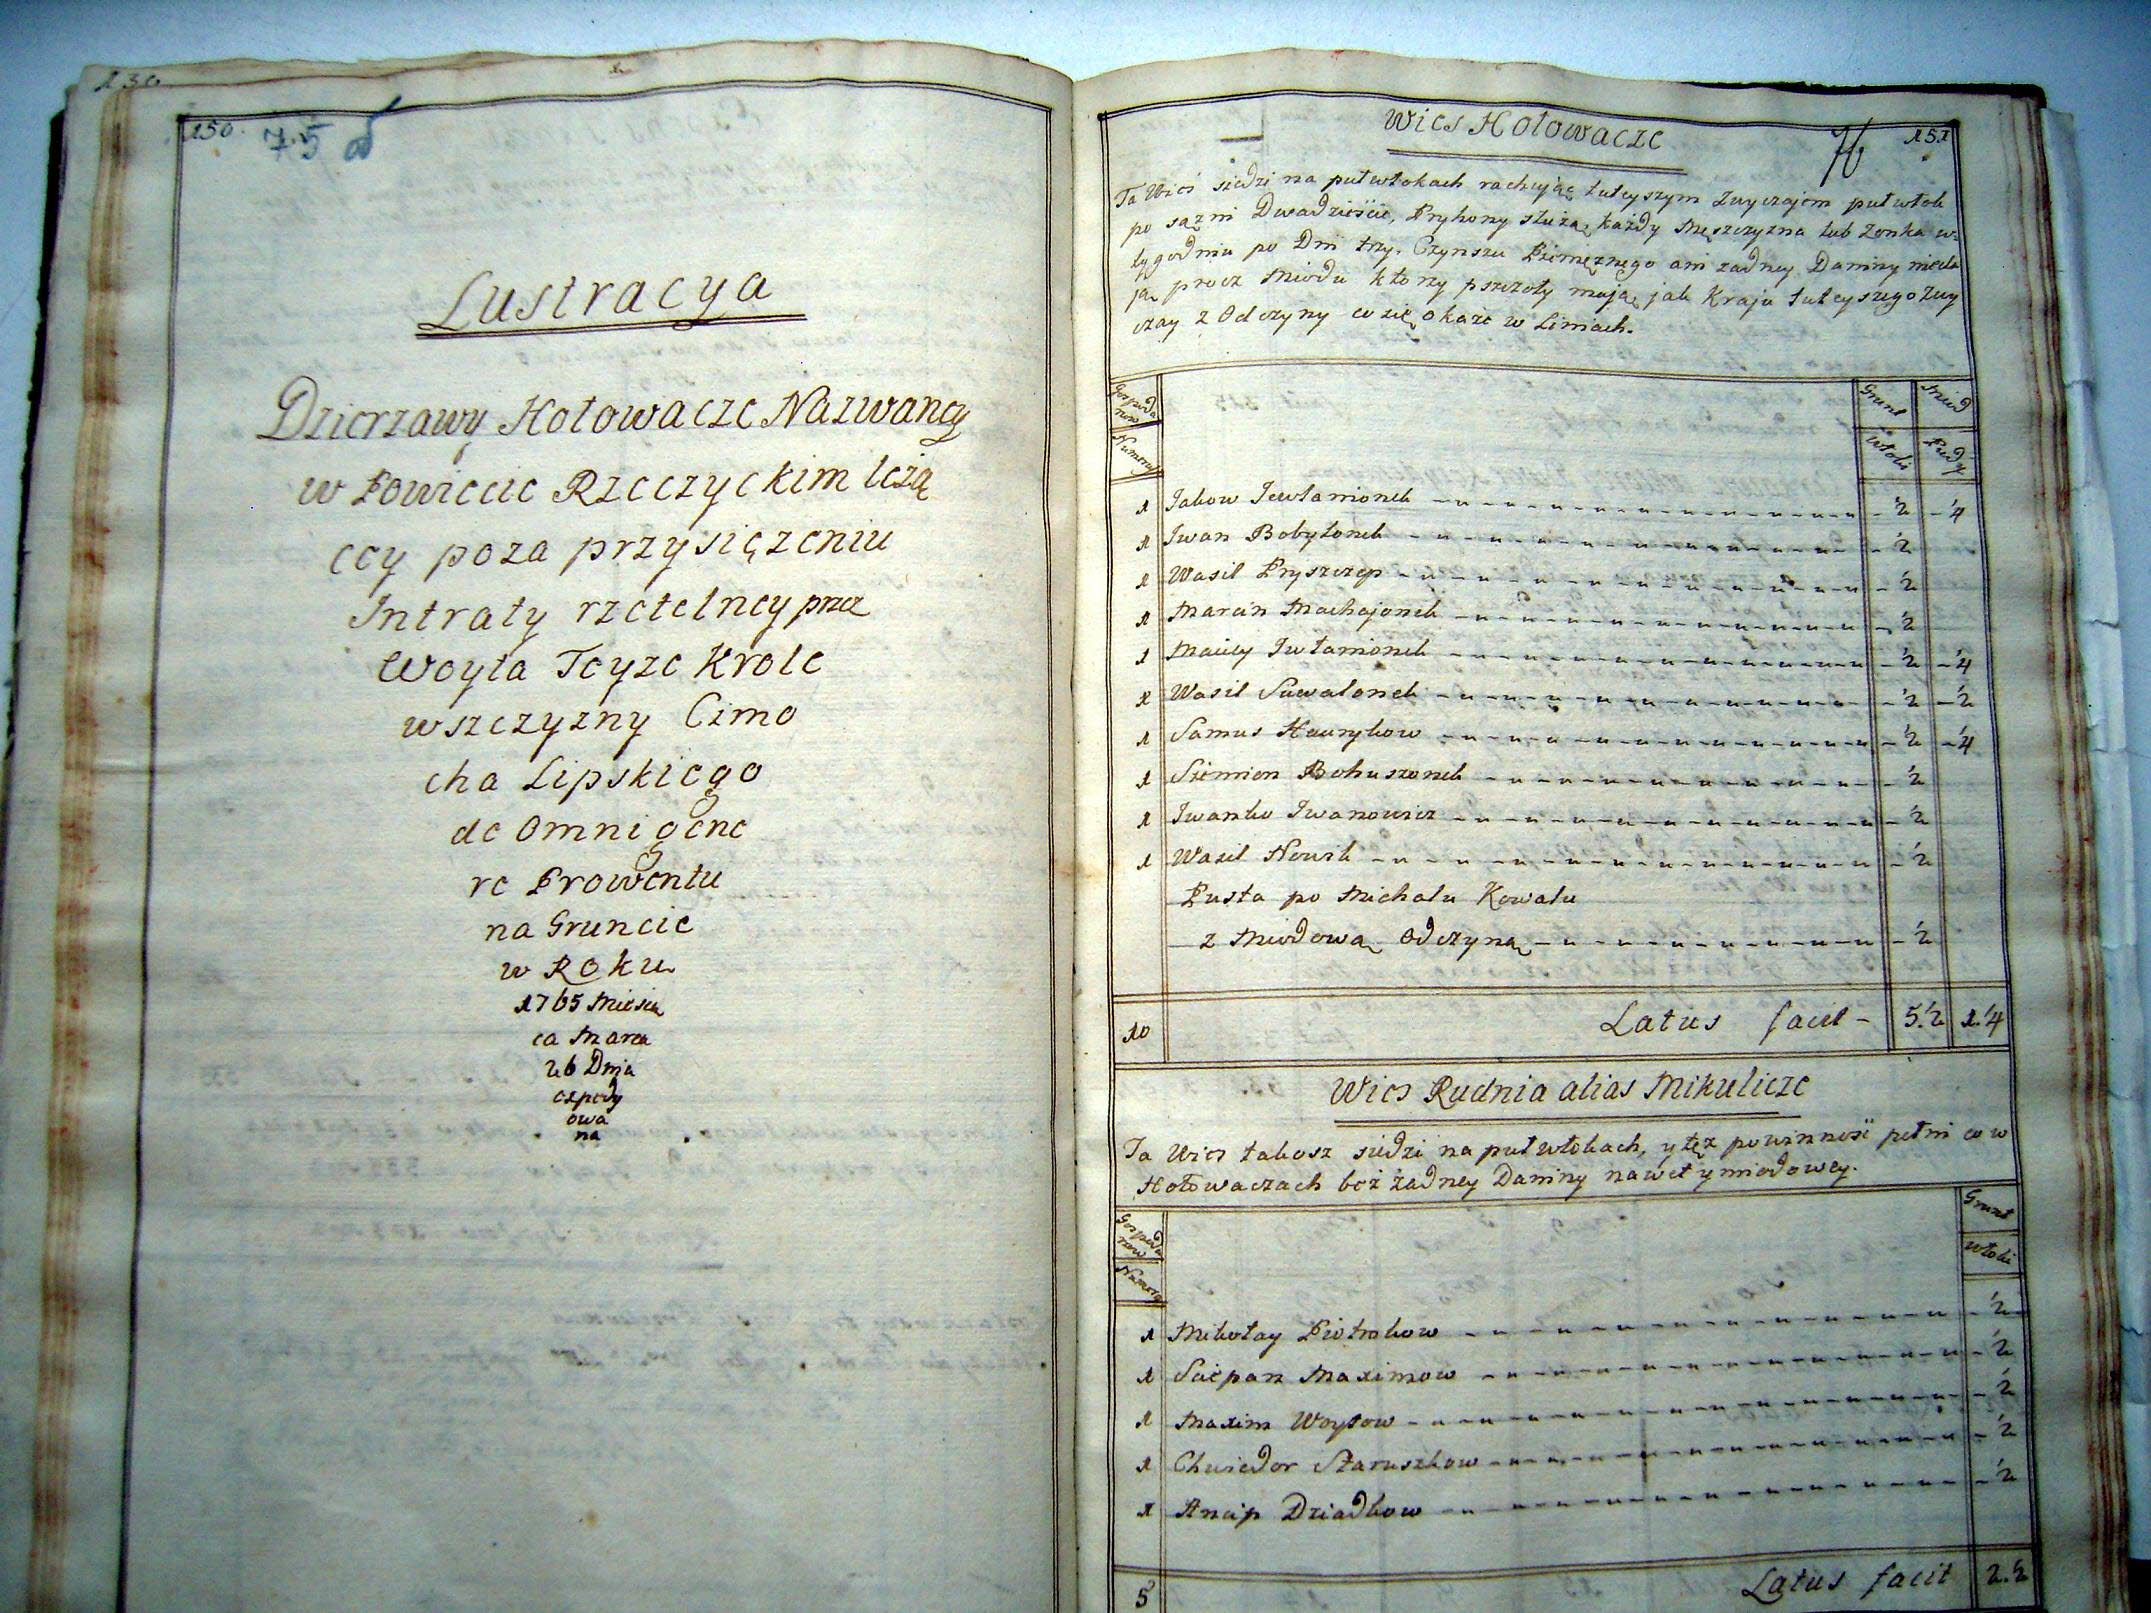 130
150. 75 об
Lustracya
Dzierzawy Hołowacze Nazwaney
w Powiecie Rzeczyckim leżą
cey poza przysięzeniu
Intraty rzetelney przez
Woyta Teyze Krole
wszczyzny Cimo
cha Lipskiego
de omni gene
re Prowentu
na Gruncie
w Roku
1765 Miesią
ca Marca
26 Dnia
expedy
owa
na
Wies Hołowacze
76 151
Ta Wieś siedzi na putwłokach rachując tuteyszym Zwyczajem putwłok
po sązni Dwadzieście, Pryhony służą, każdy Męszczyzna lub Zonka w
tygodniu po Dni trzy. Czynszu Pienięznego ani zadney Daniny nieda
ją procz Miodu ktory pszczoły mają, jak Kraju tuteyszego Zwy
czay z Odczyny co się okaze w Liniach.
Gospoda Grunt Miod
row
Numerus Włoki Pudy
1 Jakow Jewłamionek ½ ¼
1 Iwan Bobylonek ½
1 Wasil Pryszczep ½
1 Marcin Machajonek ½
1 Maciey Iwłamionek ½ ¼
1 Wasil Suwalonek ½ ½
1 Samus Haurykow ½ ¼
1 Siemion Bohuszonek ½
1 Iwanko Iwanowicz ½
1 Wasil Nowik ½
Pusta po Michału Kowalu
z Miodową Odczyną ½
10 Latus facit 5.½ 1.¼
Wies Rudnia alias Mikulicze
Ta Wies takosz siedzi na putwłokach, y tęz powinność pełni co w
Hołowaczach bez żadney Daniny nawet y miodowey.
Gospoda Grunt
row
Numerus Włoki
1 Mikołay Piotrokow ½
1 Sciepan Maximow ½
1 Maxim Woytow ½
1 Chwiedor Staruszkow ½
1 Ancip Dziadkow ½
5 Latus facit 2.½